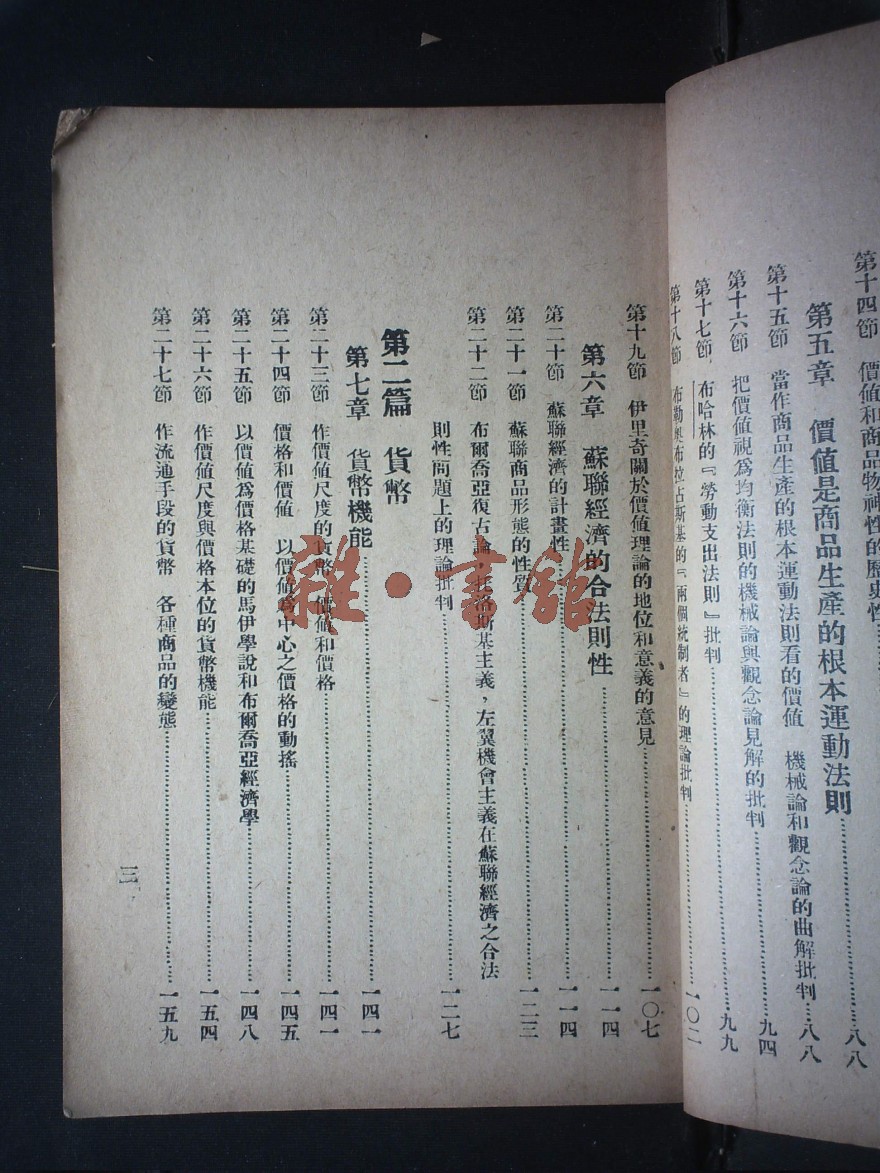 第十四節　價値和商品物神性的歷史性……八八
第五章　價値是商品生產的根本運動法則……八八
第十五節　當作商品生產的根本運動法則看的價値　機械論和觀念論的曲解批判……八八
第十六節　把價値視爲均衡法則的機械論與觀念論見解的批判……九四
第十七節　布哈林的『勞動支出法則』批判……九九
第十八節　布勒奧布拉古斯基的『兩個統制者』的理論批判……一〇二
第十九節　伊里奇關於價値理論的地位和意義的意見……一〇七
第六章　蘇聯經濟的合法則性……一一四
第二十節　蘇聯經濟的計畫性……一一四
第二十一節　蘇聯商品形態的性質……一二三
第二十二節　布爾喬亞復古論，托洛斯基主義，左翼機會主義在蘇聯經濟之合法
則性問題上的理論批判……一二七
第二篇　貨幣
第七章　貨幣機能……一四一
第二十三節　作價値尺度的貨幣　價値和價格……一四一
第二十四節　價格和價値　以價値爲中心之價格的動搖……一四五
第二十五節　以價値爲價格基礎的馬伊學說和布爾喬亞經濟學……一四八
第二十六節　作價値尺度與價格本位的貨幣機能……一五四
第二十七節　作流通手段的貨幣　各種商品的變態……一五九
三
雜·書館